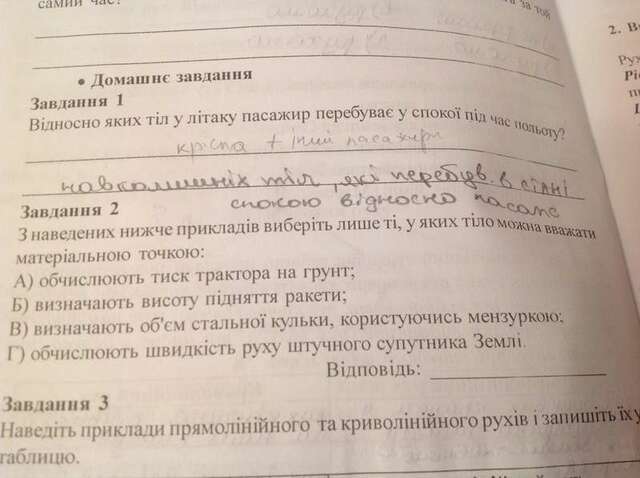 самий час?
за той
• Домашнє завдання
Завдання 1
Відносно яких тіл у літаку пасажир перебуває у спокої під час польоту?
крісла + інші пасажири
навколишніх тіл, які перебув. в стані
спокою відносно пасаж
Завдання 2
З наведених нижче прикладів виберіть лише ті, у яких тіло можна вважати
матеріальною точкою:
А) обчислюють тиск трактора на грунт;
Б) визначають висоту підняття ракети;
В) визначають об'єм стальної кульки, користуючись мензуркою;
Г) обчислюють швидкість руху штучного супутника Землі.
Відповідь:
Завдання 3
Наведіть приклади прямолінійного та криволінійного рухів і запишіть їх у
таблицю.
2. В
Рух
Рі